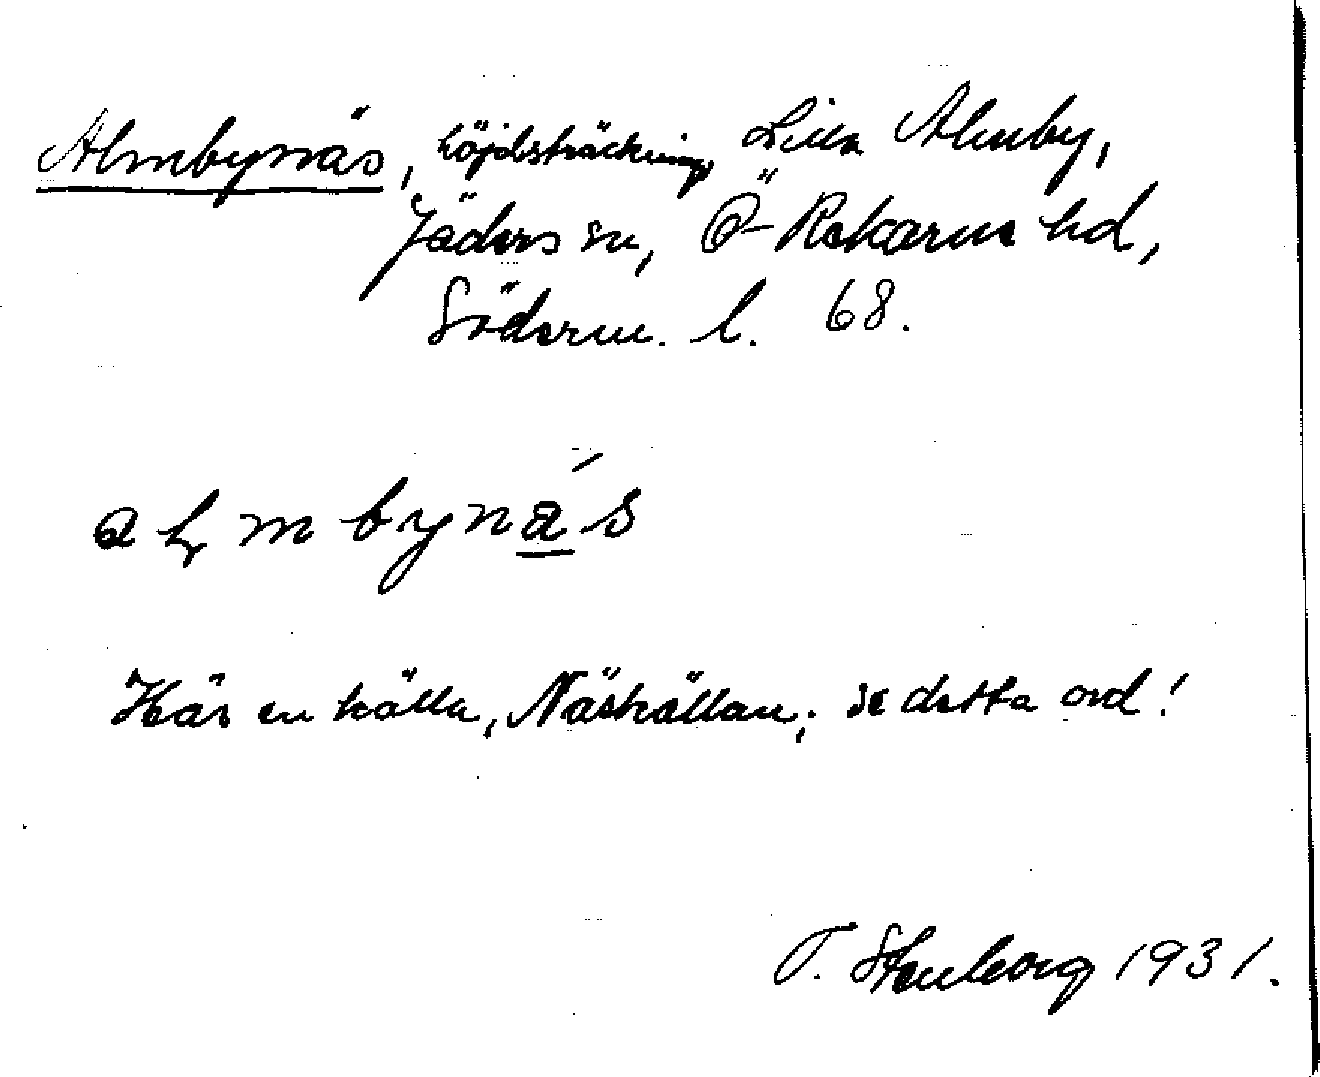 Almbynäs, höjdsträckning, Lilla Almby,
Jäders sn, Ö Rekarne hd,
Söderm. l. 68.
almbynä́s
Här en källa, Näskällan; se detta ord!
T. Stenborg 1931.